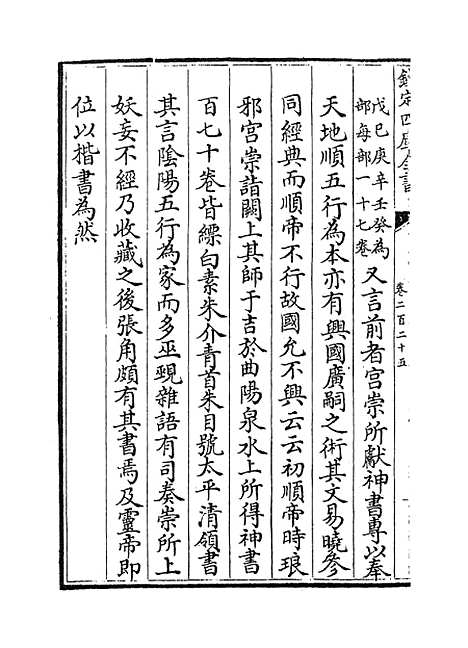 欽定四庫全書
卷二百二十五
戊己庚辛壬癸為
部每部一十七卷
又言前者宫崇所獻神書專以奉
天地順五行為本亦有興國廣嗣之術其文易曉參
同經典而順帝不行故國允不興云云初順帝時琅
邪宫崇詣闕上其師于吉於曲陽泉水上所得神書
百七十卷皆縹白素朱介青首朱目號太平清領書
其言陰陽五行為家而多巫覡雜語有司奏崇所上
妖妄不經乃收藏之後張角頗有其書焉及靈帝即
位以楷書為然